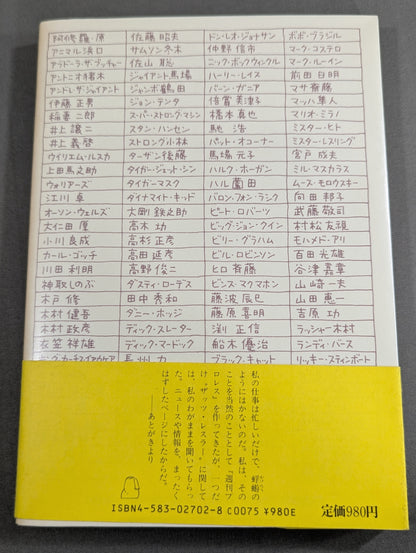 阿修羅・原
アニマル浜口
アブドーラ・ザ・ブッチャー
アントニオ猪木
アンドレ・ザ・ジャイアント
伊藤正男
稲妻二郎
井上譲二
井上義啓
ウイリエム・ルスカ
上田馬之助
ウォリアーズ
江川卓
オーソン・ウェルズ
大仁田厚
小川良成
カール・ゴッチ
川田利明
神取しのぶ
木戸修
木村健吾
木村政彦
衣笠祥雄
佐藤昭夫
サムソン冬木
佐山聡
ジャイアント馬場
ジャンボ鶴田
ジョン・テンタ
スーパー・ストロング・マシン
スタン・ハンセン
ストロング小林
ターザン後藤
タイガー・ジェット・シン
タイガーマスク
ダイナマイト・キッド
大剛鉄之助
高木功
高杉正彦
高田延彦
高野俊二
ダスティ・ローデス
田中秀和
ダニー・ホッジ
ディック・スレーター
ディック・マードック
長州力
ドン・レオ・ジョナサン
仲野信市
ニック・ボックウィンクル
ハーリー・レイス
バーン・ガニア
倍賞美津子
橋本真也
馳浩
パット・オコーナー
馬場元子
ハルク・ホーガン
ハル薗田
バロン・フォン・ラシク
ピート・ロバーツ
ビッグ・ジョン・クイン
ビリー・グラハム
ビル・ロビンソン
ヒロ斉藤
ビンス・マクマホン
藤波辰巳
藤原喜明
渕正信
船木優治
ブラック・キャット
ボボ・ブラジル
マーク・コステロ
マーク・ルーイン
前田日明
マサ斎藤
マッハ隼人
マリオ・ミラノ
ミスター・ヒト
ミスター・レスリング
宮戸成夫
ミル・マスカラス
ムース・モロウスキー
向田邦子
武藤敬司
村松友視
モハメッド・アリ
百田光雄
谷津嘉章
山崎一夫
山田恵一
吉原功
ラッシャー木村
ランディ・バース
リッキー・スティンボート
私の仕事は忙しいだけで、蜉蝣の
ようにはかないのだ。私は、その
ことを当然のこととして『週刊プ
ロレス』を作ってきたが、一つだ
け〝ザッツ・レスラー〟に関して
は、私のわがままを聞いてもらっ
た。ニュースや情報を、まったく
はずしたページにしたからだ。
――あとがきより
ISBN4-583-02702-8 C0075 ¥980E
定価980円